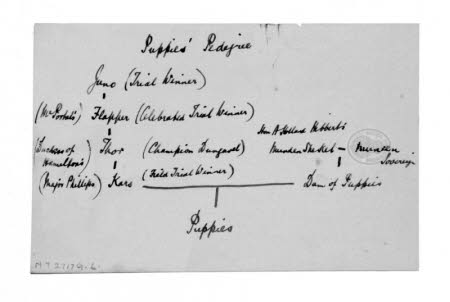 Puppies' Pedigree
Juno (Trial Winner)
(Mr Portal's) Flapper (Celebrated Trial Winner)
(Duchess of Hamilton's) Thor (Champion Dungavel) Hon A Holland Hibbert's
Munden Munden Sovereign
(Major Phillips) Kars (Field Trial Winner) Dam of Puppies
Puppies